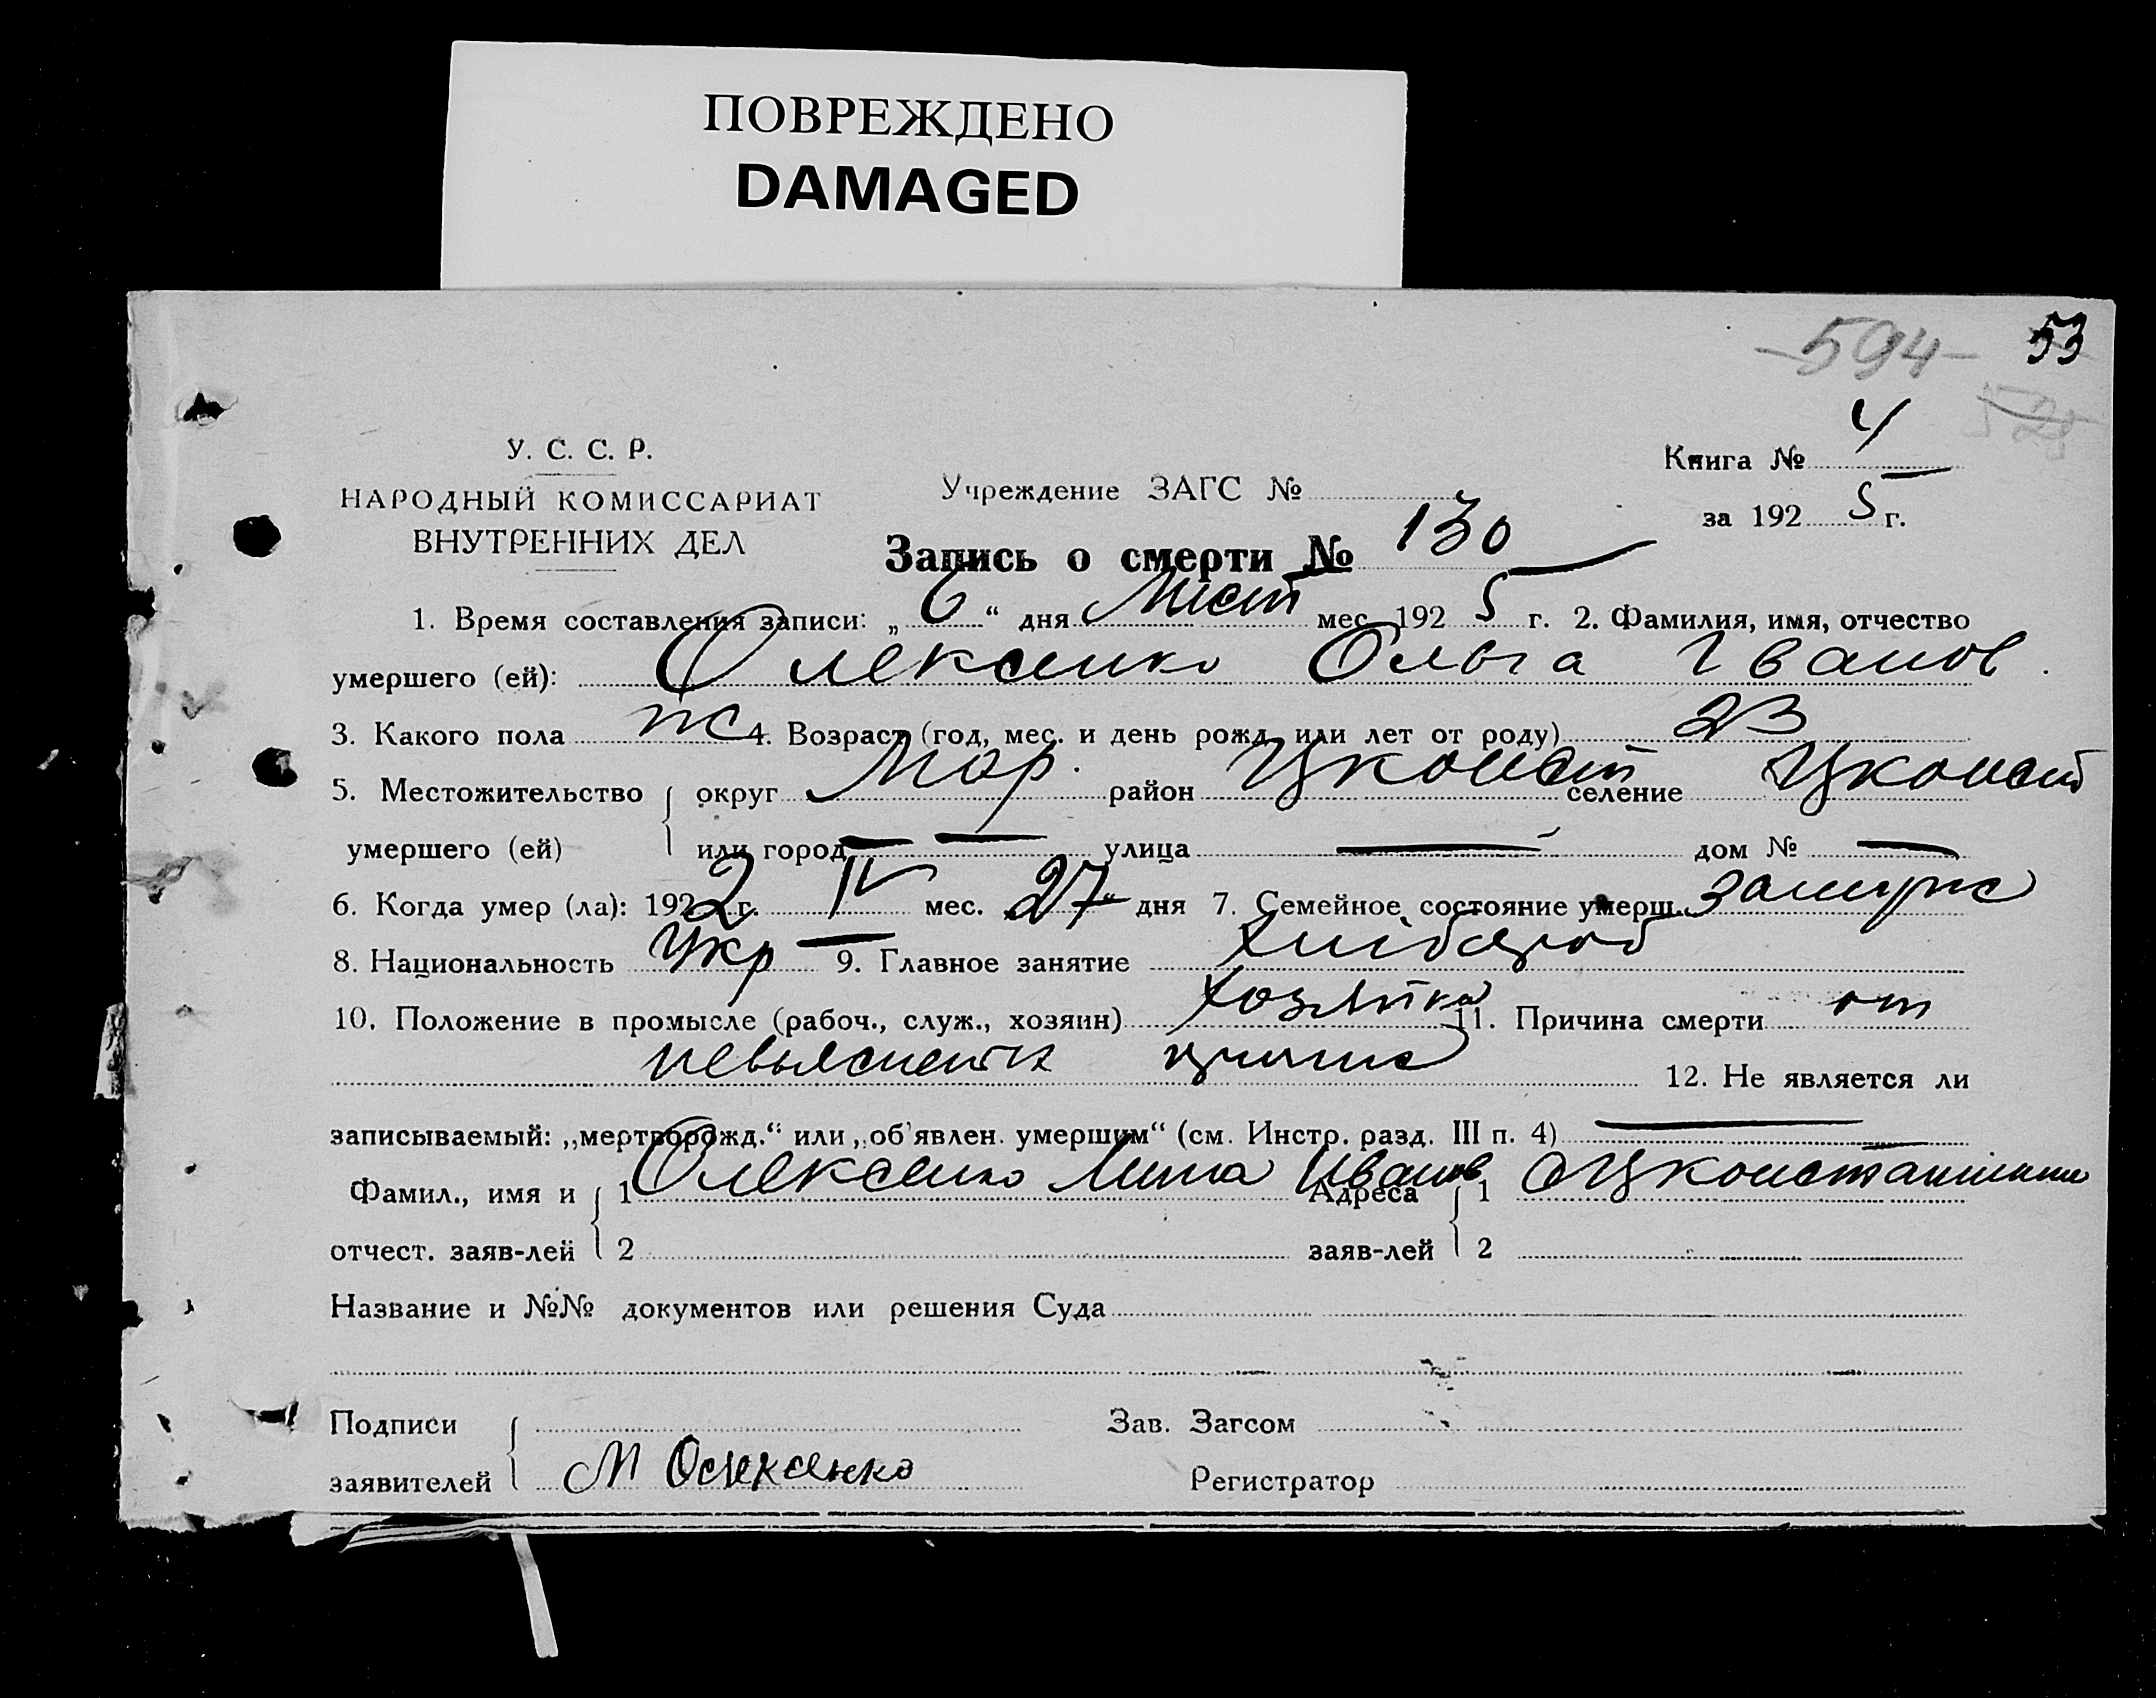 ПОВРЕЖДЕНО
DAMAGED
-594- 53
У. С. С. Р.
НАРОДНЫЙ КОМИССАРИАТ
ВНУТРЕННИХ ДЕЛ
Учреждение ЗАГС №
Книга № 4
за 192 5 г.
Запись о смерти № 130
1. Время составления записи: „ 6 “ дня мес. 192 5 г. 2. Фамилия, имя, отчество
умершего (ей): Олексенко Ольга Iванов.
3. Какого пола ж 4. Возраст (год, мес. и день рожд. или лет от роду) 23
5. Местожительство округ Мар. район Цконст селение Цконст
умершего (ей) или город — — улица — дом № —
6. Когда умер (ла): 192 2 г. IV мес. 27 “ дня 7. Семейное состояние умерш. замуж
8. Национальность Укр — 9. Главное занятие хлiбороб
10. Положение в промысле (рабоч., служ., хозяин) хозяйка 11. Причина смерти от
12. Не является ли
записываемый: „мертворожд.“ или „об'явлен. умершим“ (см. Инстр. разд. III п. 4) —
Фамил., имя и 1 Олексенко Иванов Адреса 1
отчест. заяв-лей 2 заяв-лей 2
Название и №№ документов или решения Суда
Подписи Зав. Загсом
заявителей М Олексенко Регистратор